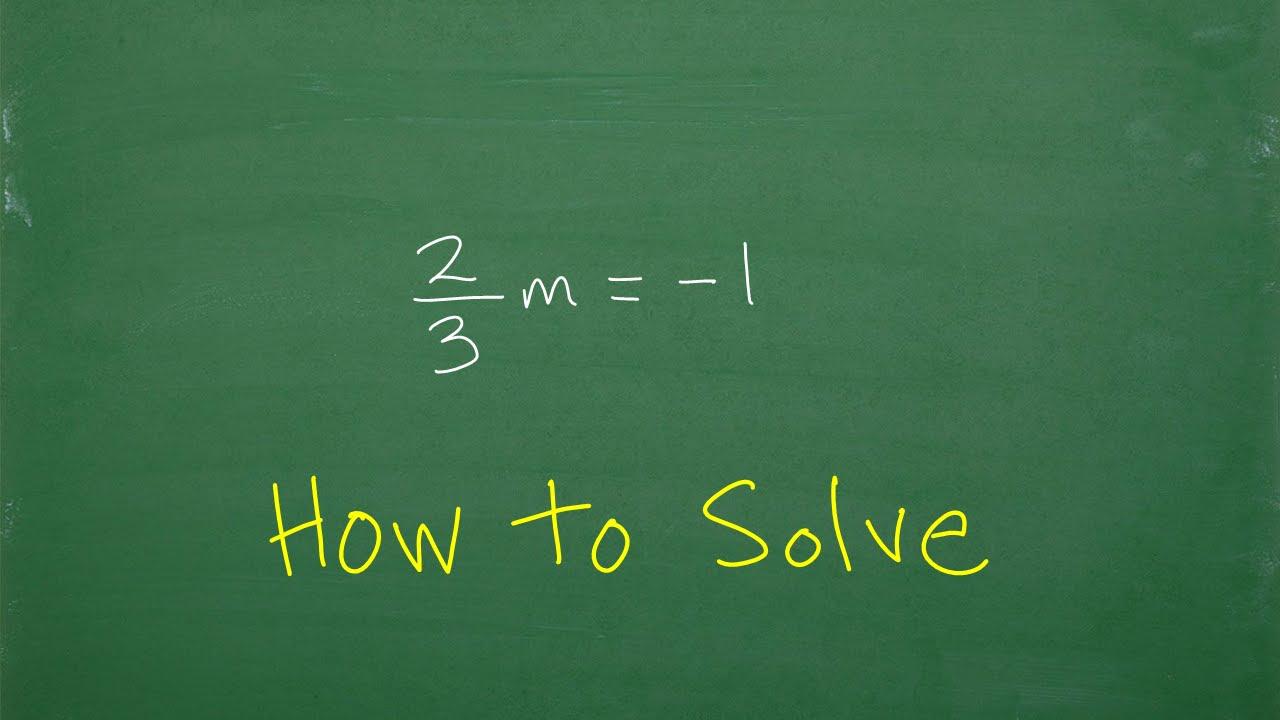 2/3 m = -1
How to Solve